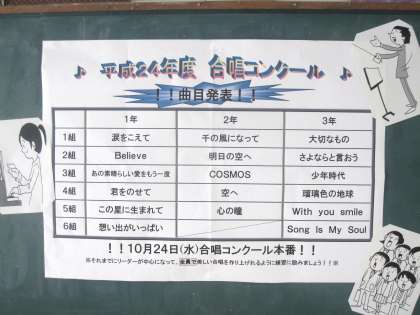 ♪ 平成24年度 合唱コンクール ♪
！！曲目発表！！
1年 2年 3年
1組 涙をこえて 千の風になって 大切なもの
2組 Believe 明日の空へ さよならと言おう
3組 あの素晴らしい愛をもう一度 COSMOS 少年時代
4組 君をのせて 空へ 瑠璃色の地球
5組 この星に生まれて 心の瞳 With you smile
6組 想い出がいっぱい Song Is My Soul
！！10月24日(水)合唱コンクール本番！！
※それまでにリーダーが中心になって、全員で美しい合唱を作り上げれるように練習に励みましょう！！※